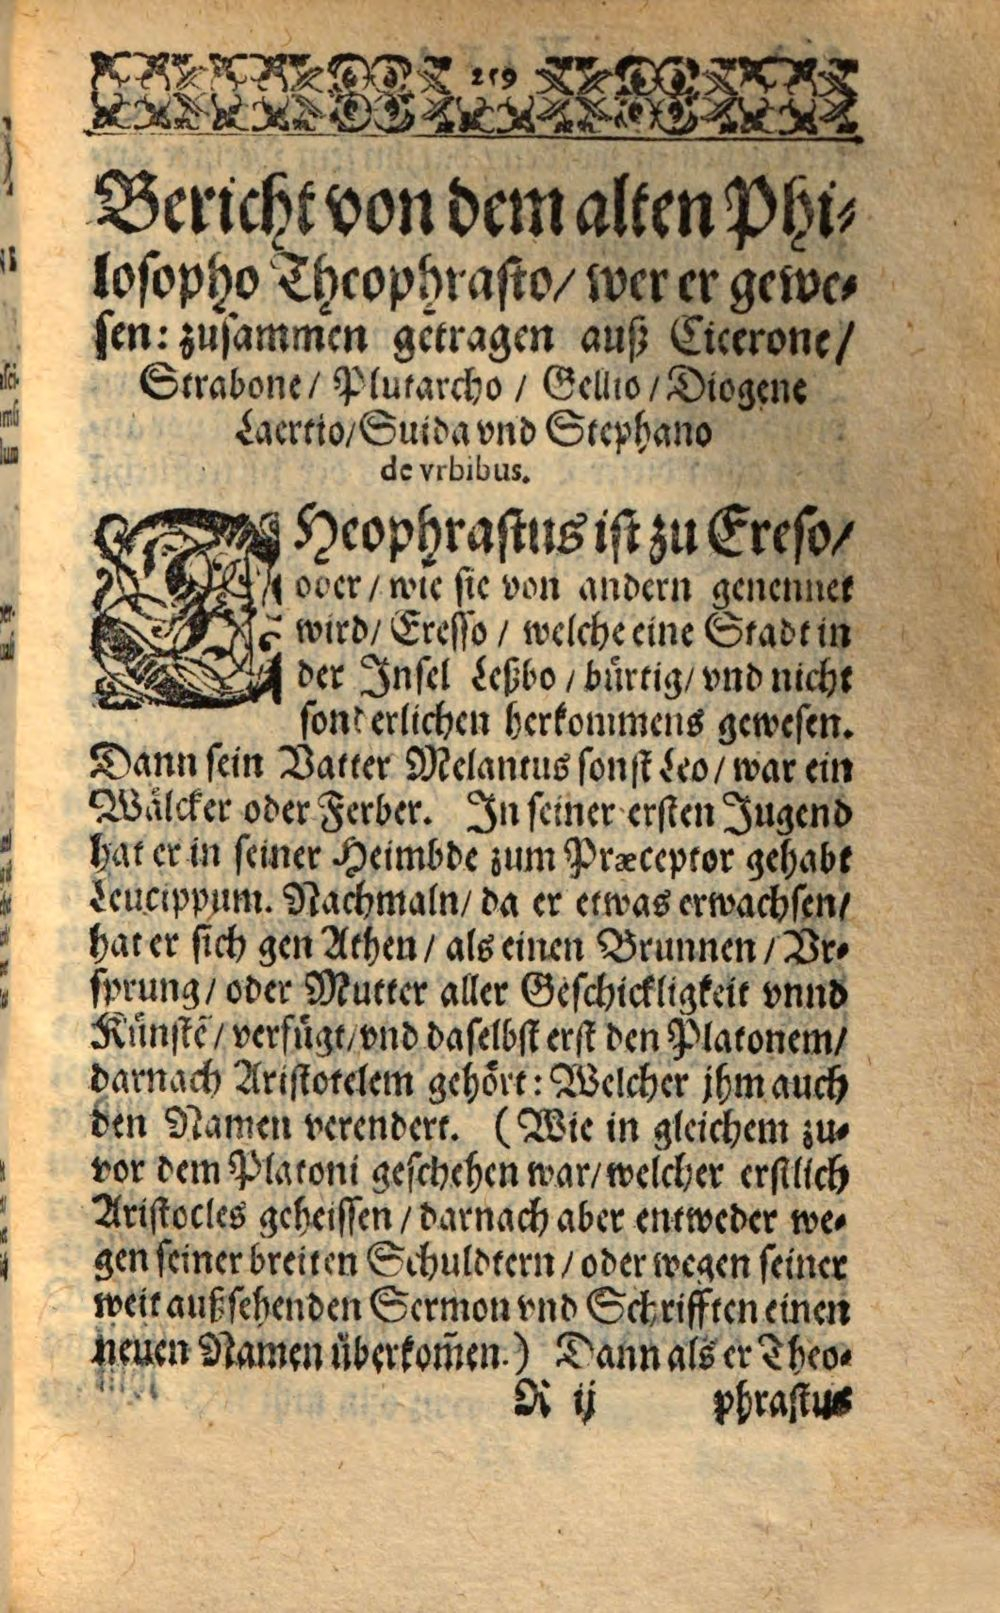 259
Bericht von dem alten Phi-
losopho Theophrasto/ wer er gewe-
sen: zusammen getragen auß Cicerone/
Strabone/ Plutarcho / Gellio / Diogene
Laertio/ Suida vnd Stephano
de vrbibus.
THeophrastus ist zu Ereso/
oder / wie sie von andern genennet
wird/ Eresso / welche eine Stadt in
der Insel Leßbo / bürtig/ vnd nicht
sonderlichen herkommens gewesen.
Dann sein Vatter Melantus sonst Leo / war ein
Wälcker oder Ferber. In seiner ersten Jugend
hat er in seiner Heimbde zum Præceptor gehabt
Leucippum. Nachmaln/ da er etwas erwachsen/
hat er sich gen Athen / als einen Brunnen / Vr-
sprung / oder Mutter aller Geschickligkeit vnnd
Künstẽ / verfügt/ vnd daselbst erst den Platonem/
darnach Aristotelem gehört: Welcher jhm auch
den Namen verendert. (Wie in gleichem zu-
vor dem Platoni geschehen war/ welcher erstlich
Aristocles geheissen / darnach aber entweder we-
gen seiner breiten Schuldtern / oder wegen seiner
weit außsehenden Sermon vnd Schrifften einen
neuen Namen überkom̃en.) Dann als er Theo-
R ij phrastus